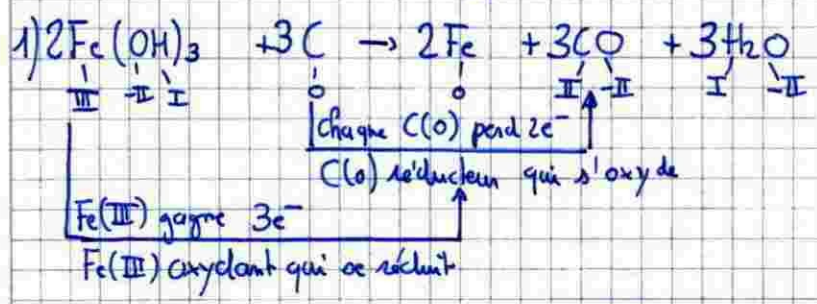 1) 2Fe(OH)₃ + 3C → 2Fe + 3CO + 3H₂O
III -II I 0 0 II -II I -II
Chaque C(0) perd 2e⁻
C(0) réducteur qui s'oxyde
Fe(III) gagne 3e⁻
Fe(III) oxydant qui se réduit